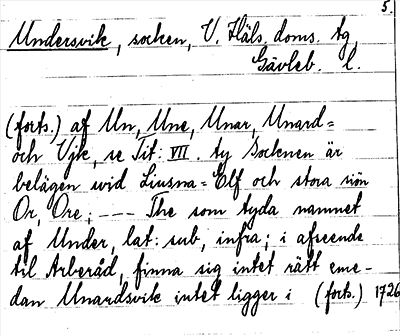 5.
Undersvik, socken, V. Häls. doms. tg
Gävleb. l.
(forts.) af Un, Une, Unar, Unard=
och Vjk, se Tit: VII. ty Socknen är
belägen wid Liusna=Elf och stora siön
Or, Ore; --- The som tyda namnet
af Under, lat: sub, infra; i afseende
til Arberåd, finna sig intet rätt eme-
dan Unardsvik intet ligger i (forts.) 1726